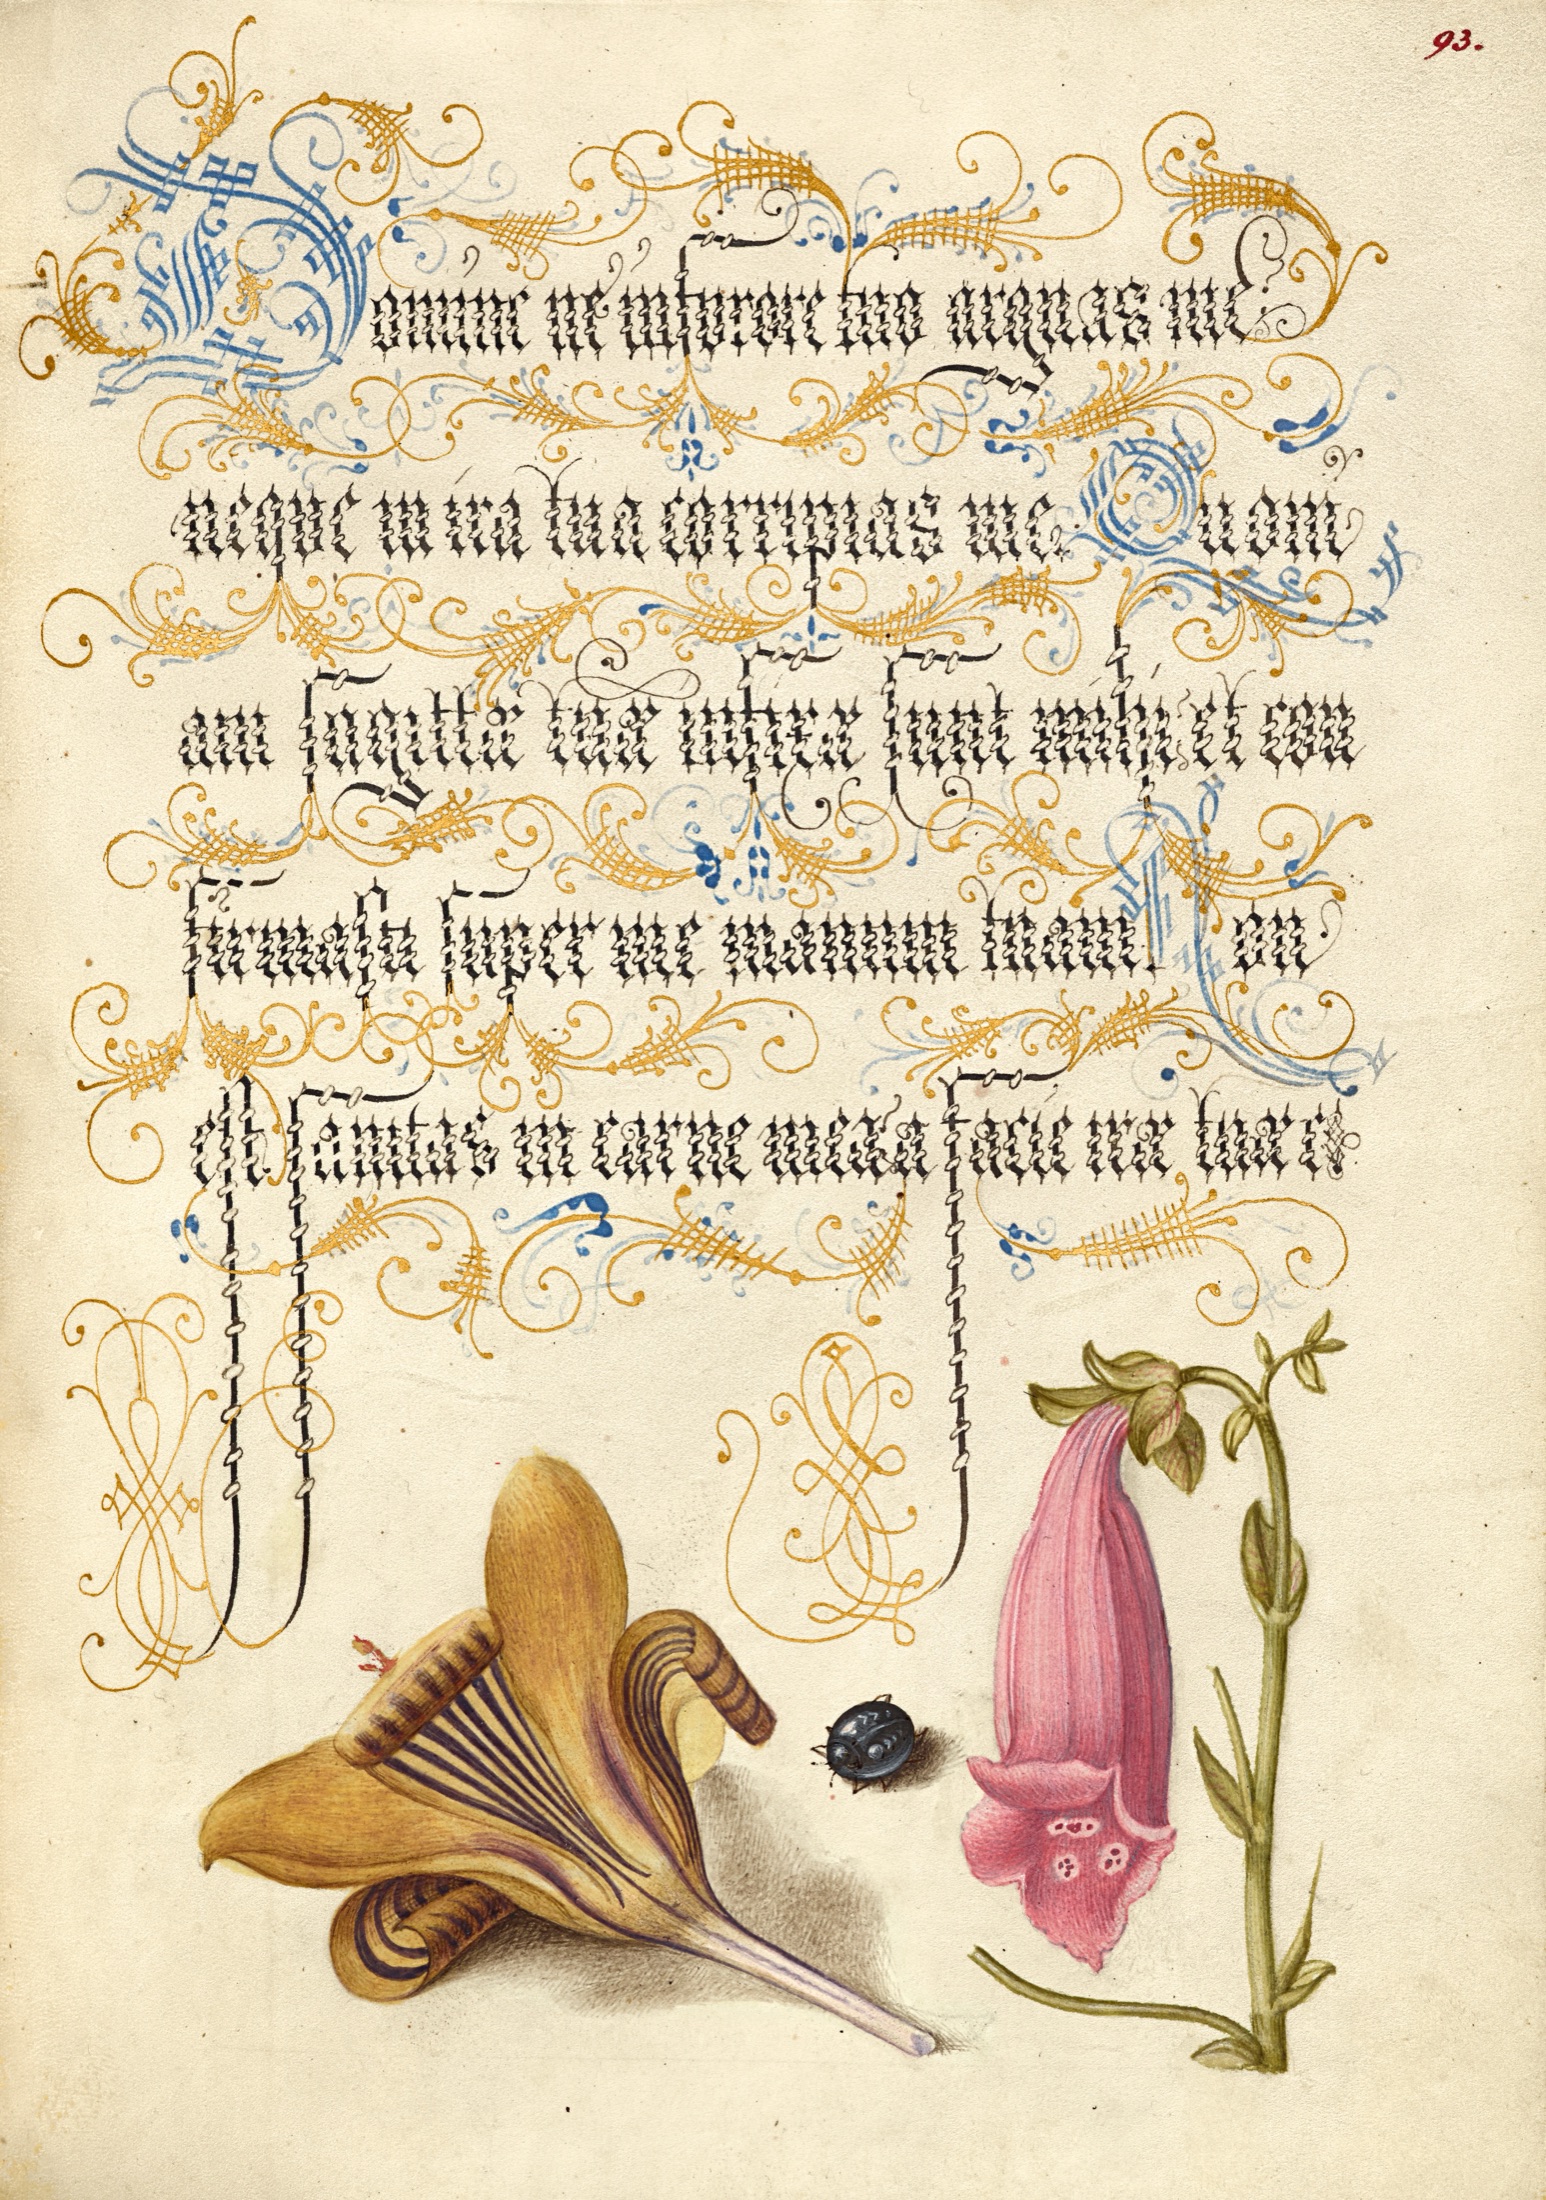 93.
Domine ne in furore tuo arguas me:
neque in ira tua corripias me. Quoni
am sagittæ tuæ infixæ sunt mihi: et con
firmasti super me manum tuam. Non
est sanitas in carne mea a facie iræ tuæ: